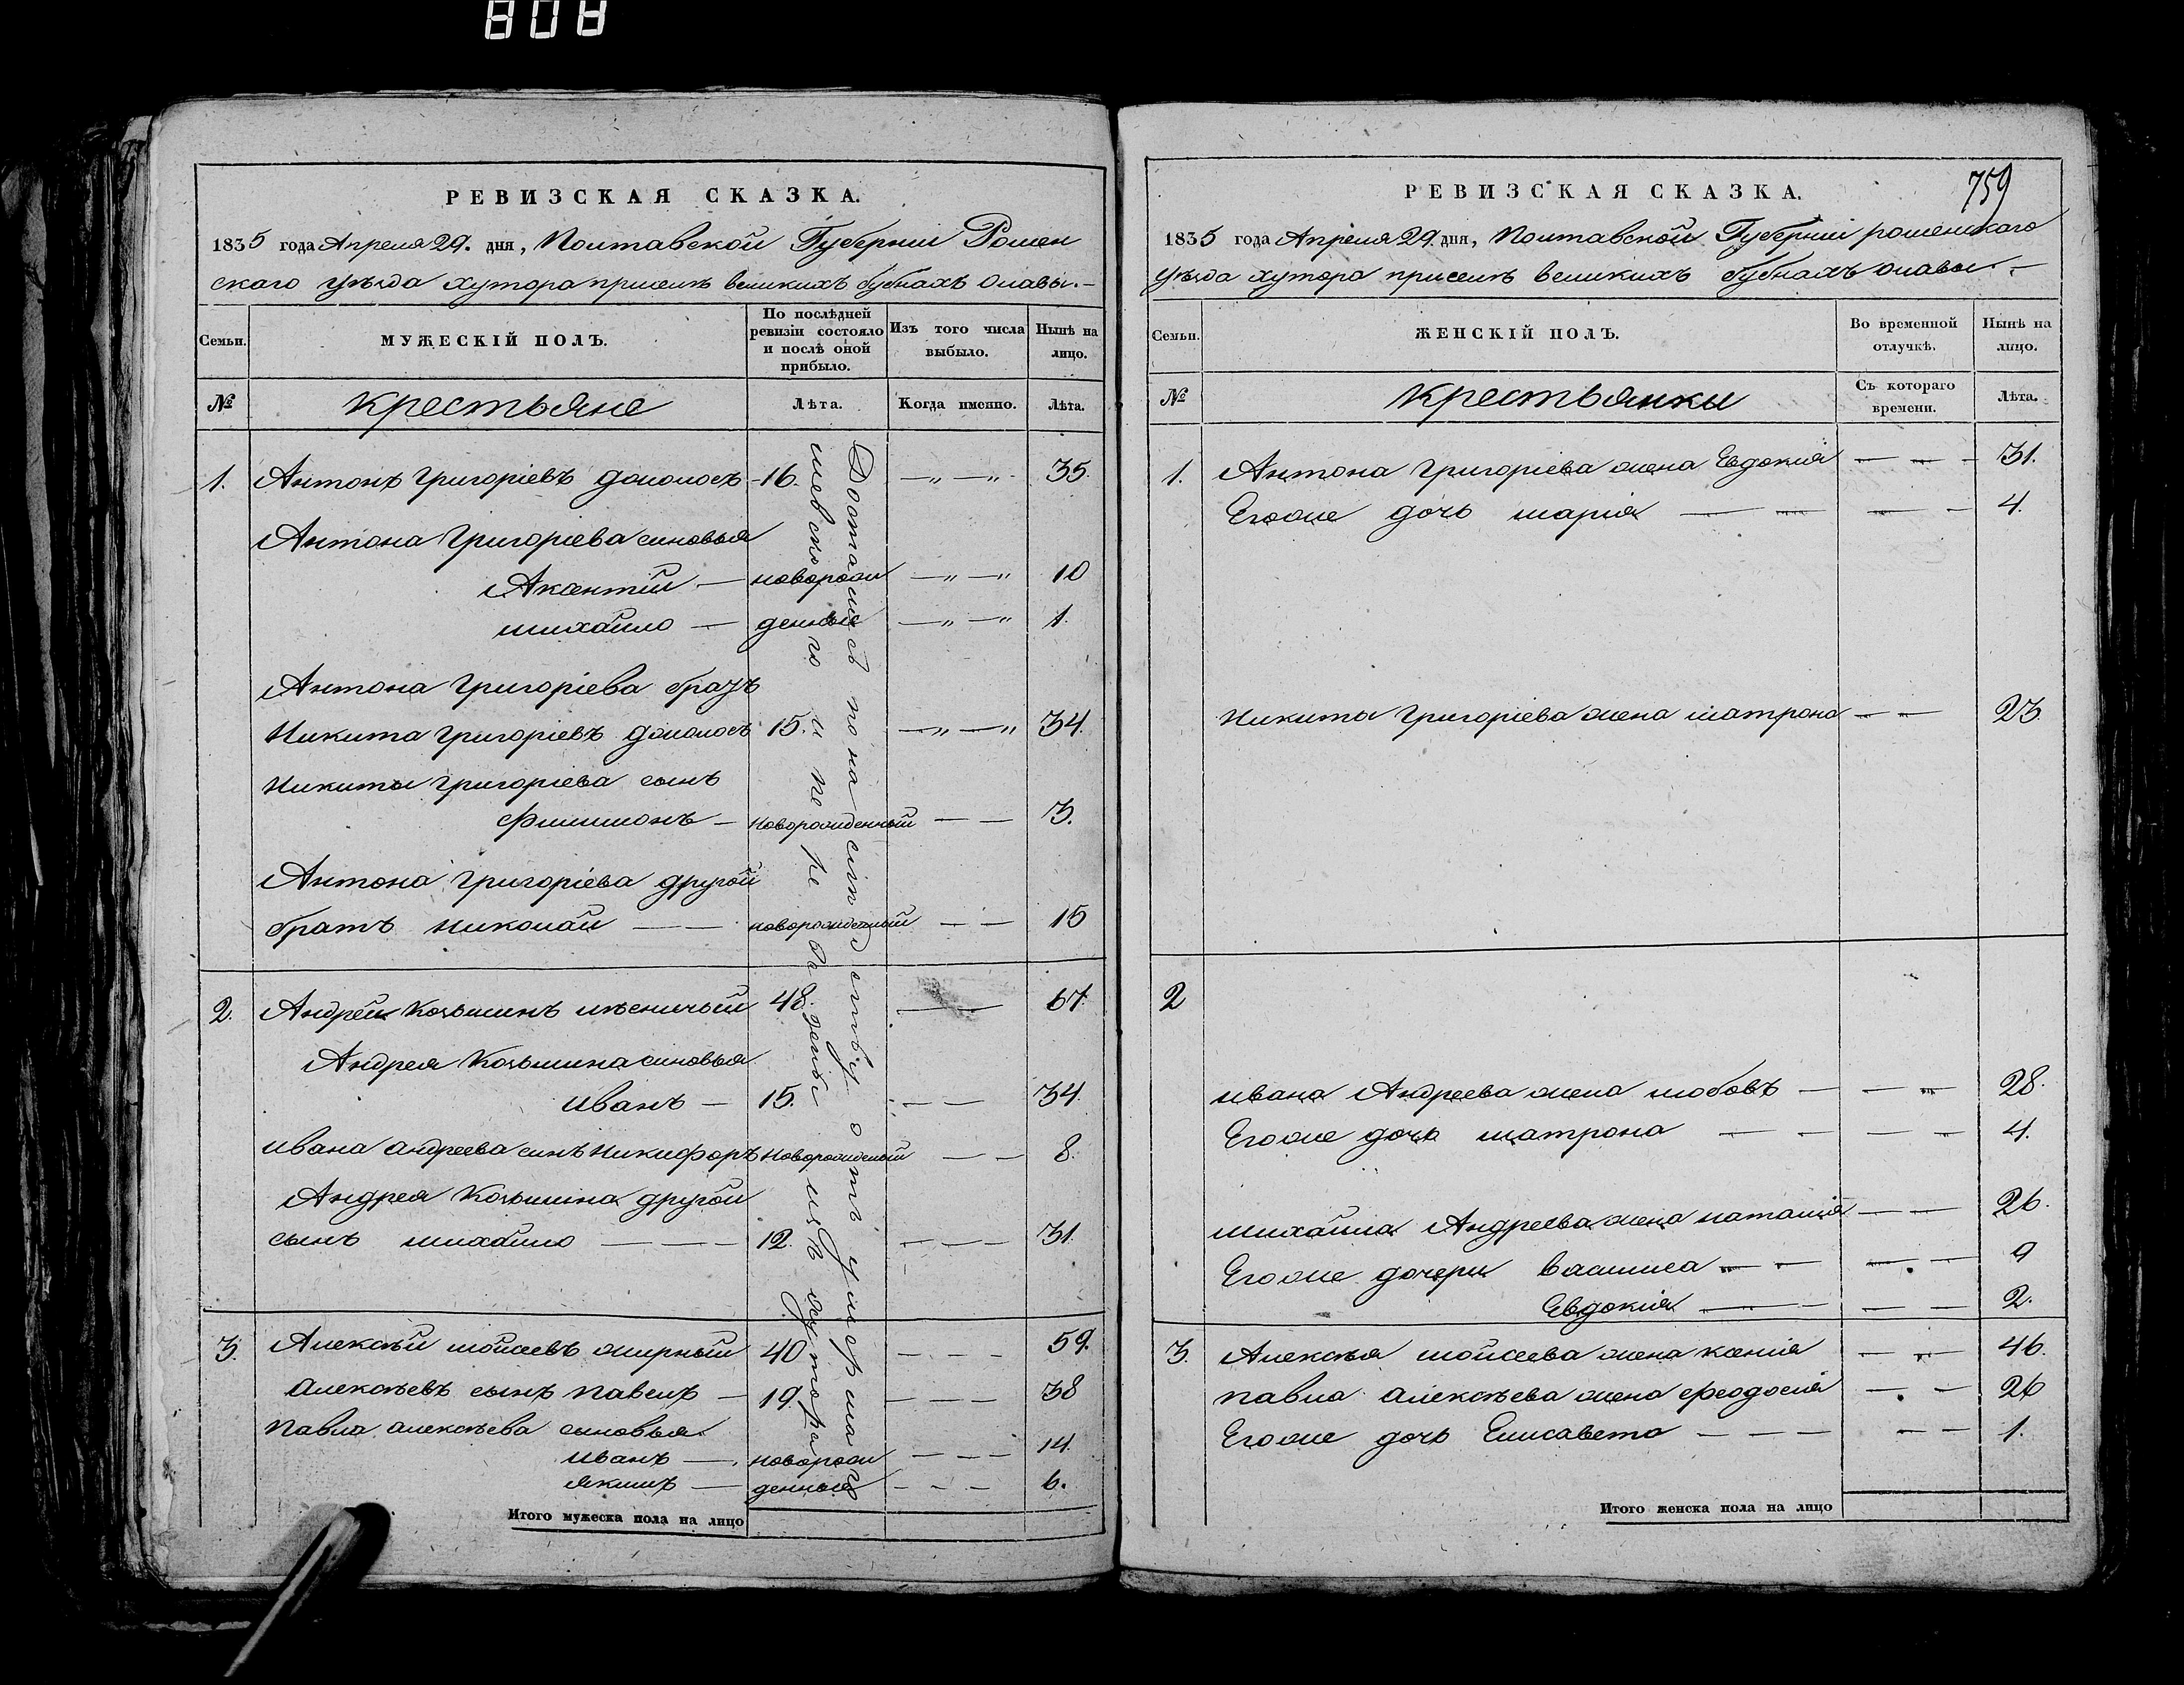 808
РЕВИЗСКАЯ СКАЗКА.
1835 года Апреля 29. дня, Полтавской Губерніи Ромен
скаго уѣзда хутора при селѣ великихъ бубнахъ
Семьи.
МУЖЕСКІЙ ПОЛЪ.
По послѣдней ревизіи состояло и послѣ оной прибыло.
Изъ того числа выбыло.
Нынѣ на лицо.
№
крестьяне
Лѣта.
Когда именно.
Лѣта.
1. Антонъ Григоріевъ 16. 35.
Антона Григоріева синовья
Аксентій — новорож 10
михайло — денные 1.
Антона Григоріева братъ
Никита Григоріевъ 15. 34.
Никиты Григоріева сынъ
Филимонъ — новорожденный — — 3.
Антона Григоріева другой
братъ Николай — — новорожденный — — 15
2. Андрей Козьминъ 48. — 67.
Андрея Козьмина синовья
иванъ — 15. — — 34.
ивана андреева синъ Никифоръ новорожденый — — 8.
Андрея Козьмина другой
сынъ михайло — — — 12. — — — 31.
3. Алексѣй мойсеевъ жирный 40 — — — 59.
Алексѣевъ сынъ павелъ — 19 — — — 38
павла алексѣева сыновья
иванъ — новорож — — — 14.
якимъ — денные — — — 6.
Итого мужеска пола на лицо
Достались по наслѣдству отъ умершаго
и не раздѣленные
759
РЕВИЗСКАЯ СКАЗКА.
1835 года Апреля 29. дня, Полтавской Губерніи роменскаго
уѣзда хутора при селѣ великихъ бубнахъ
Семьи.
ЖЕНСКІЙ ПОЛЪ.
Во временной отлучкѣ.
Нынѣ на лицо.
№
крестьянки
Съ котораго времени.
Лѣта.
1. Антона Григоріева жена Евдокія — — — 31.
Егоже дочь марія — — — — 4.
Никиты Григоріева жена матрона — — 23.
2
ивана Андреева жена любовъ — — — 28.
Егоже дочь матрона — — — — 4.
михайла Андреева жена наталія — — 26.
Егоже дочери василиса — — — — 9
Евдокія — — — — 2.
3. Алексѣя мойсеева жена ксенія — — 46.
павла алексѣева жена феодосія — — 26
Егоже дочь Елисавета — — — — — 1.
Итого женска пола на лицо